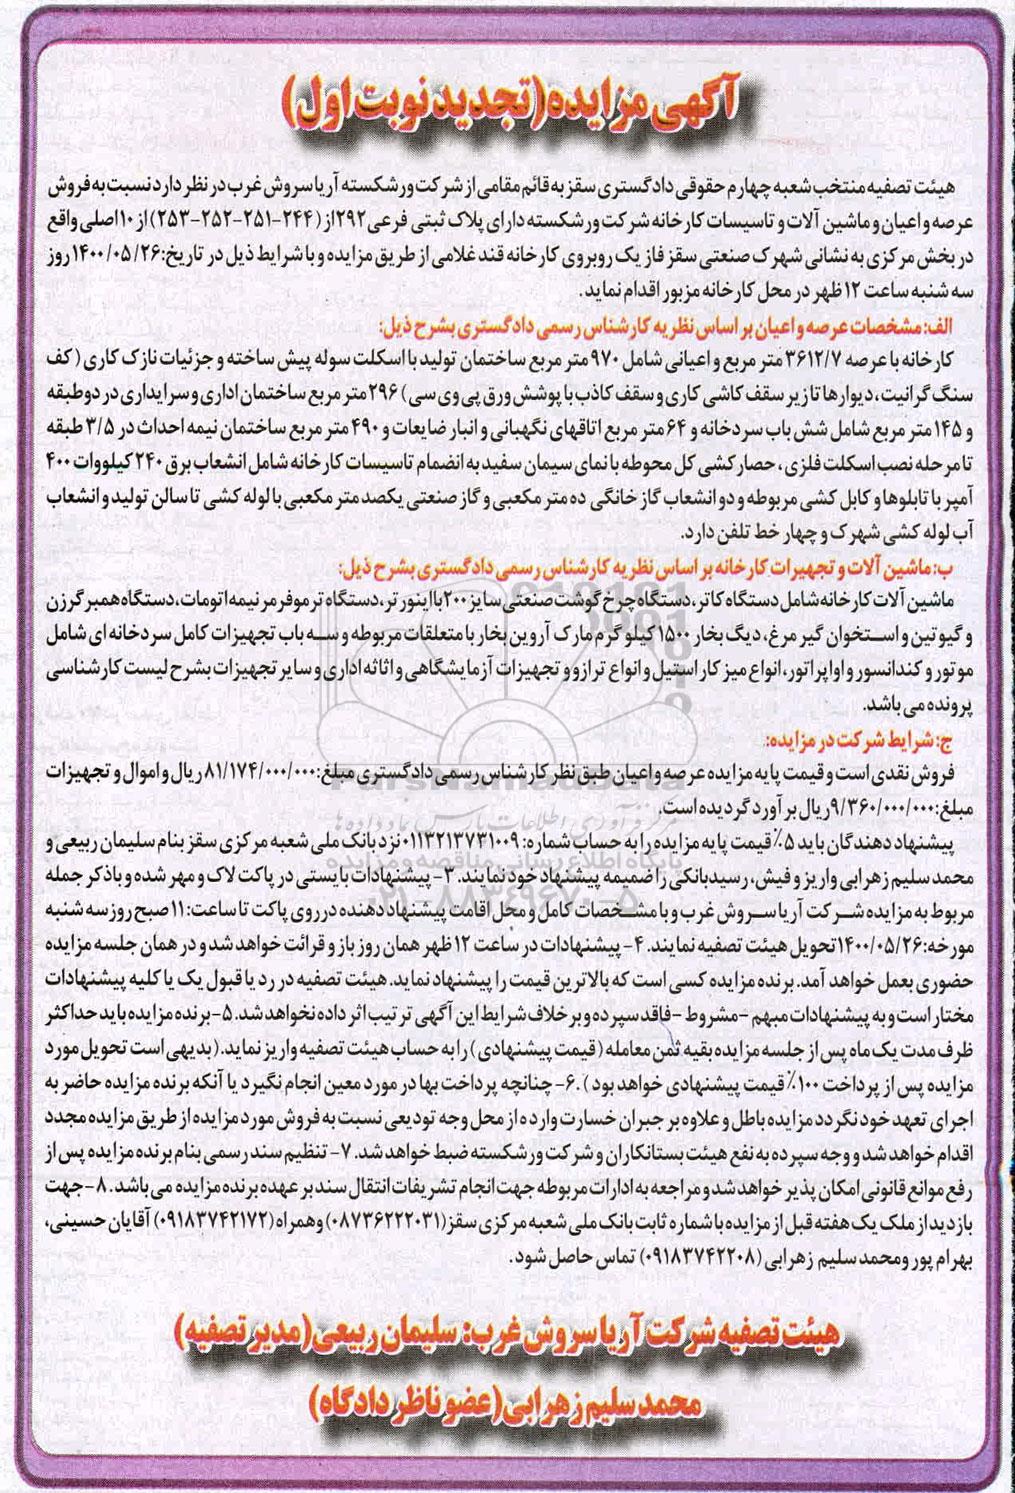 آگهی مزایده(تجدید نوبت اول)
هیئت تصفیه منتخب شعبه چهارم حقوقی دادگستری سقز به قائم مقامی از شرکت ورشکسته آریا سروش غرب در نظر دارد نسبت به فروش
عرصه و اعیان و ماشین آلات و تاسیسات کارخانه شرکت ورشکسته دارای پلاک ثبتی فرعی ۲۹۲از (۲۴۴-۲۵۱-۲۵۲-۲۵۳) از ۱۰اصلی واقع
در بخش مرکزی به نشانی شهرک صنعتی سقز فاز یک روبروی کارخانه قند غلامی از طریق مزایده و با شرایط ذیل در تاریخ:۱۴۰۰/۰۵/۲۶روز
سه شنبه ساعت ۱۲ظهر در محل کارخانه مزبور اقدام نماید.
الف: مشخصات عرصه و اعیان بر اساس نظریه کارشناس رسمی دادگستری بشرح ذیل:
کارخانه با عرصه ۳۶۱۲/۷ متر مربع و اعیانی شامل ۹۷۰ متر مربع ساختمان تولید با اسکلت سوله پیش ساخته و جزئیات نازک کاری (کف
سنگ گرانیت، دیوارها تا زیر سقف کاشی کاری و سقف کاذب با پوشش ورق پی وی سی) ۲۹۶متر مربع ساختمان اداری و سرایداری در دوطبقه
و ۱۴۵متر مربع شامل شش باب سردخانه و ۶۴متر مربع اتاقهای نگهبانی و انبار ضایعات و ۴۹۰متر مربع ساختمان نیمه احداث در ۳/۵ طبقه
تا مرحله نصب اسکلت فلزی، حصارکشی کل محوطه با نمای سیمان سفید به انضمام تاسیسات کارخانه شامل انشعاب برق ۲۴۰کیلووات ۴۰۰
آمپر با تابلوها و کابل کشی مربوطه و دو انشعاب گاز خانگی ده متر مکعبی و گاز صنعتی یکصد متر مکعبی با لوله کشی تا سالن تولید و انشعاب
آب لوله کشی شهرک و چهار خط تلفن دارد.
ب: ماشین آلات و تجهیزات کارخانه بر اساس نظریه کارشناس رسمی دادگستری بشرح ذیل:
ماشین آلات کارخانه شامل دستگاه کاتر، دستگاه چرخ گوشت صنعتی سایز ۲۰۰با اینورتر، دستگاه ترموفرمر نیمه اتومات، دستگاه همبرگرزن
و گیوتین و استخوان گیر مرغ، دیگ بخار ۱۵۰۰کیلوگرم مارک آروین بخار با متعلقات مربوطه و سه باب تجهیزات کامل سردخانه ای شامل
موتور و کندانسور و اواپراتور، انواع میز کار استیل و انواع ترازو و تجهیزات آزمایشگاهی و اثاثه اداری و سایر تجهیزات بشرح لیست کارشناسی
پرونده می باشد.
ج: شرایط شرکت در مزایده:
فروش نقدی است و قیمت پایه مزایده عرصه و اعیان طبق نظر کارشناس رسمی دادگستری مبلغ:۸۱/۱۷۴/۰۰۰/۰۰۰ریال و اموال و تجهیزات
مبلغ:۹/۳۶۰/۰۰۰/۰۰۰ریال برآورد گردیده است.
پیشنهاد دهندگان باید ۵٪ قیمت پایه مزایده را به حساب شماره: ۰۱۱۳۲۱۳۷۳۱۰۰۹نزد بانک ملی شعبه مرکزی سقز بنام سلیمان ربیعی و
محمد سلیم زهرابی واریز و فیش، رسید بانکی را ضمیمه پیشنهاد خود نمایند. ۳- پیشنهادات بایستی در پاکت لاک و مهر شده و با ذکر جمله
مربوط به مزایده شرکت آریا سروش غرب و با مشخصات کامل و محل اقامت پیشنهاد دهنده در روی پاکت تا ساعت:۱۱ صبح روز سه شنبه
مورخه:۱۴۰۰/۰۵/۲۶تحویل هیئت تصفیه نمایند. ۴- پیشنهادات در ساعت ۱۲ظهر همان روز باز و قرائت خواهد شد و در همان جلسه مزایده
حضوری بعمل خواهد آمد. برنده مزایده کسی است که بالاترین قیمت را پیشنهاد نماید. هیئت تصفیه در رد یا قبول یک یا کلیه پیشنهادات
مختار است و به پیشنهادات مبهم -مشروط -فاقد سپرده و برخلاف شرایط این آگهی ترتیب اثر داده نخواهد شد. ۵-برنده مزایده باید حداکثر
ظرف مدت یک ماه پس از جلسه مزایده بقیه ثمن معامله (قیمت پیشنهادی) را به حساب هیئت تصفیه واریز نماید. (بدیهی است تحویل مورد
مزایده پس از پرداخت ۱۰۰٪ قیمت پیشنهادی خواهد بود). ۶- چنانچه پرداخت بها در مورد معین انجام نگیرد یا آنکه برنده مزایده حاضر به
اجرای تعهد خود نگردد مزایده باطل و علاوه بر جبران خسارت وارده از محل وجه تودیعی نسبت به فروش مورد مزایده از طریق مزایده مجدد
اقدام خواهد شد و وجه سپرده به نفع هیئت بستانکاران و شرکت ورشکسته ضبط خواهد شد. ۷- تنظیم سند رسمی بنام برنده مزایده پس از
رفع موانع قانونی امکان پذیر خواهد شد و مراجعه به ادارات مربوطه جهت انجام تشریفات انتقال سند بر عهده برنده مزایده می باشد. ۸-جهت
بازدید از ملک یک هفته قبل از مزایده با شماره ثابت بانک ملی شعبه مرکزی سقز(۰۸۷۳۶۲۲۲۰۳۱) و همراه (۰۹۱۸۳۷۴۲۱۷۲) آقایان حسینی،
بهرام پور و محمد سلیم زهرابی (۰۹۱۸۳۷۴۲۲۰۸) تماس حاصل شود.
هیئت تصفیه شرکت آریا سروش غرب: سلیمان ربیعی(مدیر تصفیه)
محمد سلیم زهرابی(عضو ناظر دادگاه)
ParsNamadData
پایگاه اطلاع رسانی مناقصه و مزایده
۰۲۱-۸۸۳۴۹۶۷۰-۵